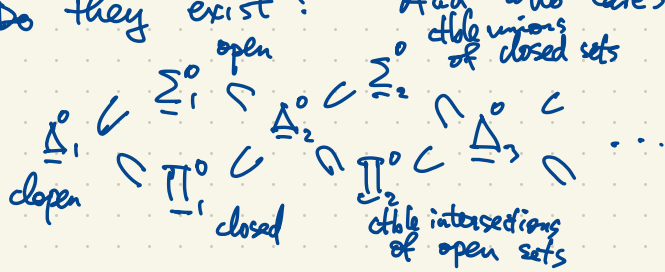 Do they exist? And who cares
ctble unions
open of closed sets
Σ⁰₁ Σ⁰₂
Δ⁰₁ ⊂ ⊂ Δ⁰₂ ⊂ ⊂ Δ⁰₃ ⊂ ...
⊂ Π⁰₁ ⊂ ⊂ Π⁰₂ ⊂ ⊂
clopen closed ctble intersections
of open sets